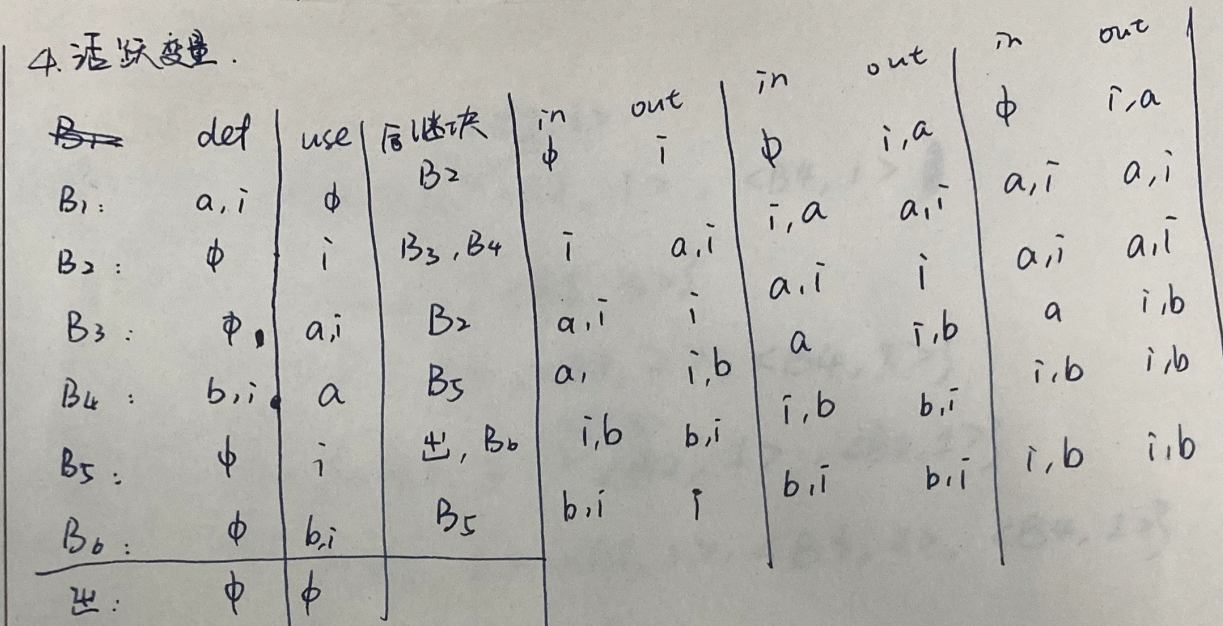 4. 活跃变量.
def use 后继块 in out in out in out
B1: a,i φ B2 φ i φ i,a φ i,a
B2: φ i B3,B4 i a,i i,a a,i a,i a,i
B3: φ. a,i B2 a,i i a,i i a,i a,i
B4: b,i a B5 a, i,b a i,b a i,b
B5: φ i 出,B6 i,b b,i i,b b,i i,b i,b
B6: φ b,i B5 b,i i b,i b,i i,b i,b
出: φ φ